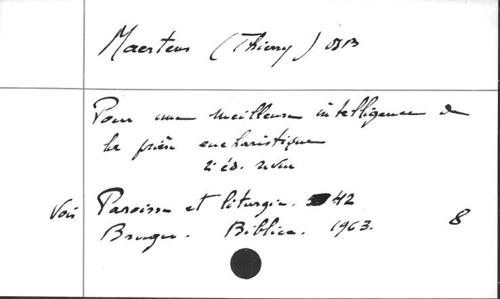 Maertens (Thierry) OSB
Pour une meilleure intelligence de
la prière eucharistique
2e éd. revue
Voir Paroisse et liturgie. 42
Bruges. Biblica. 1963. 8